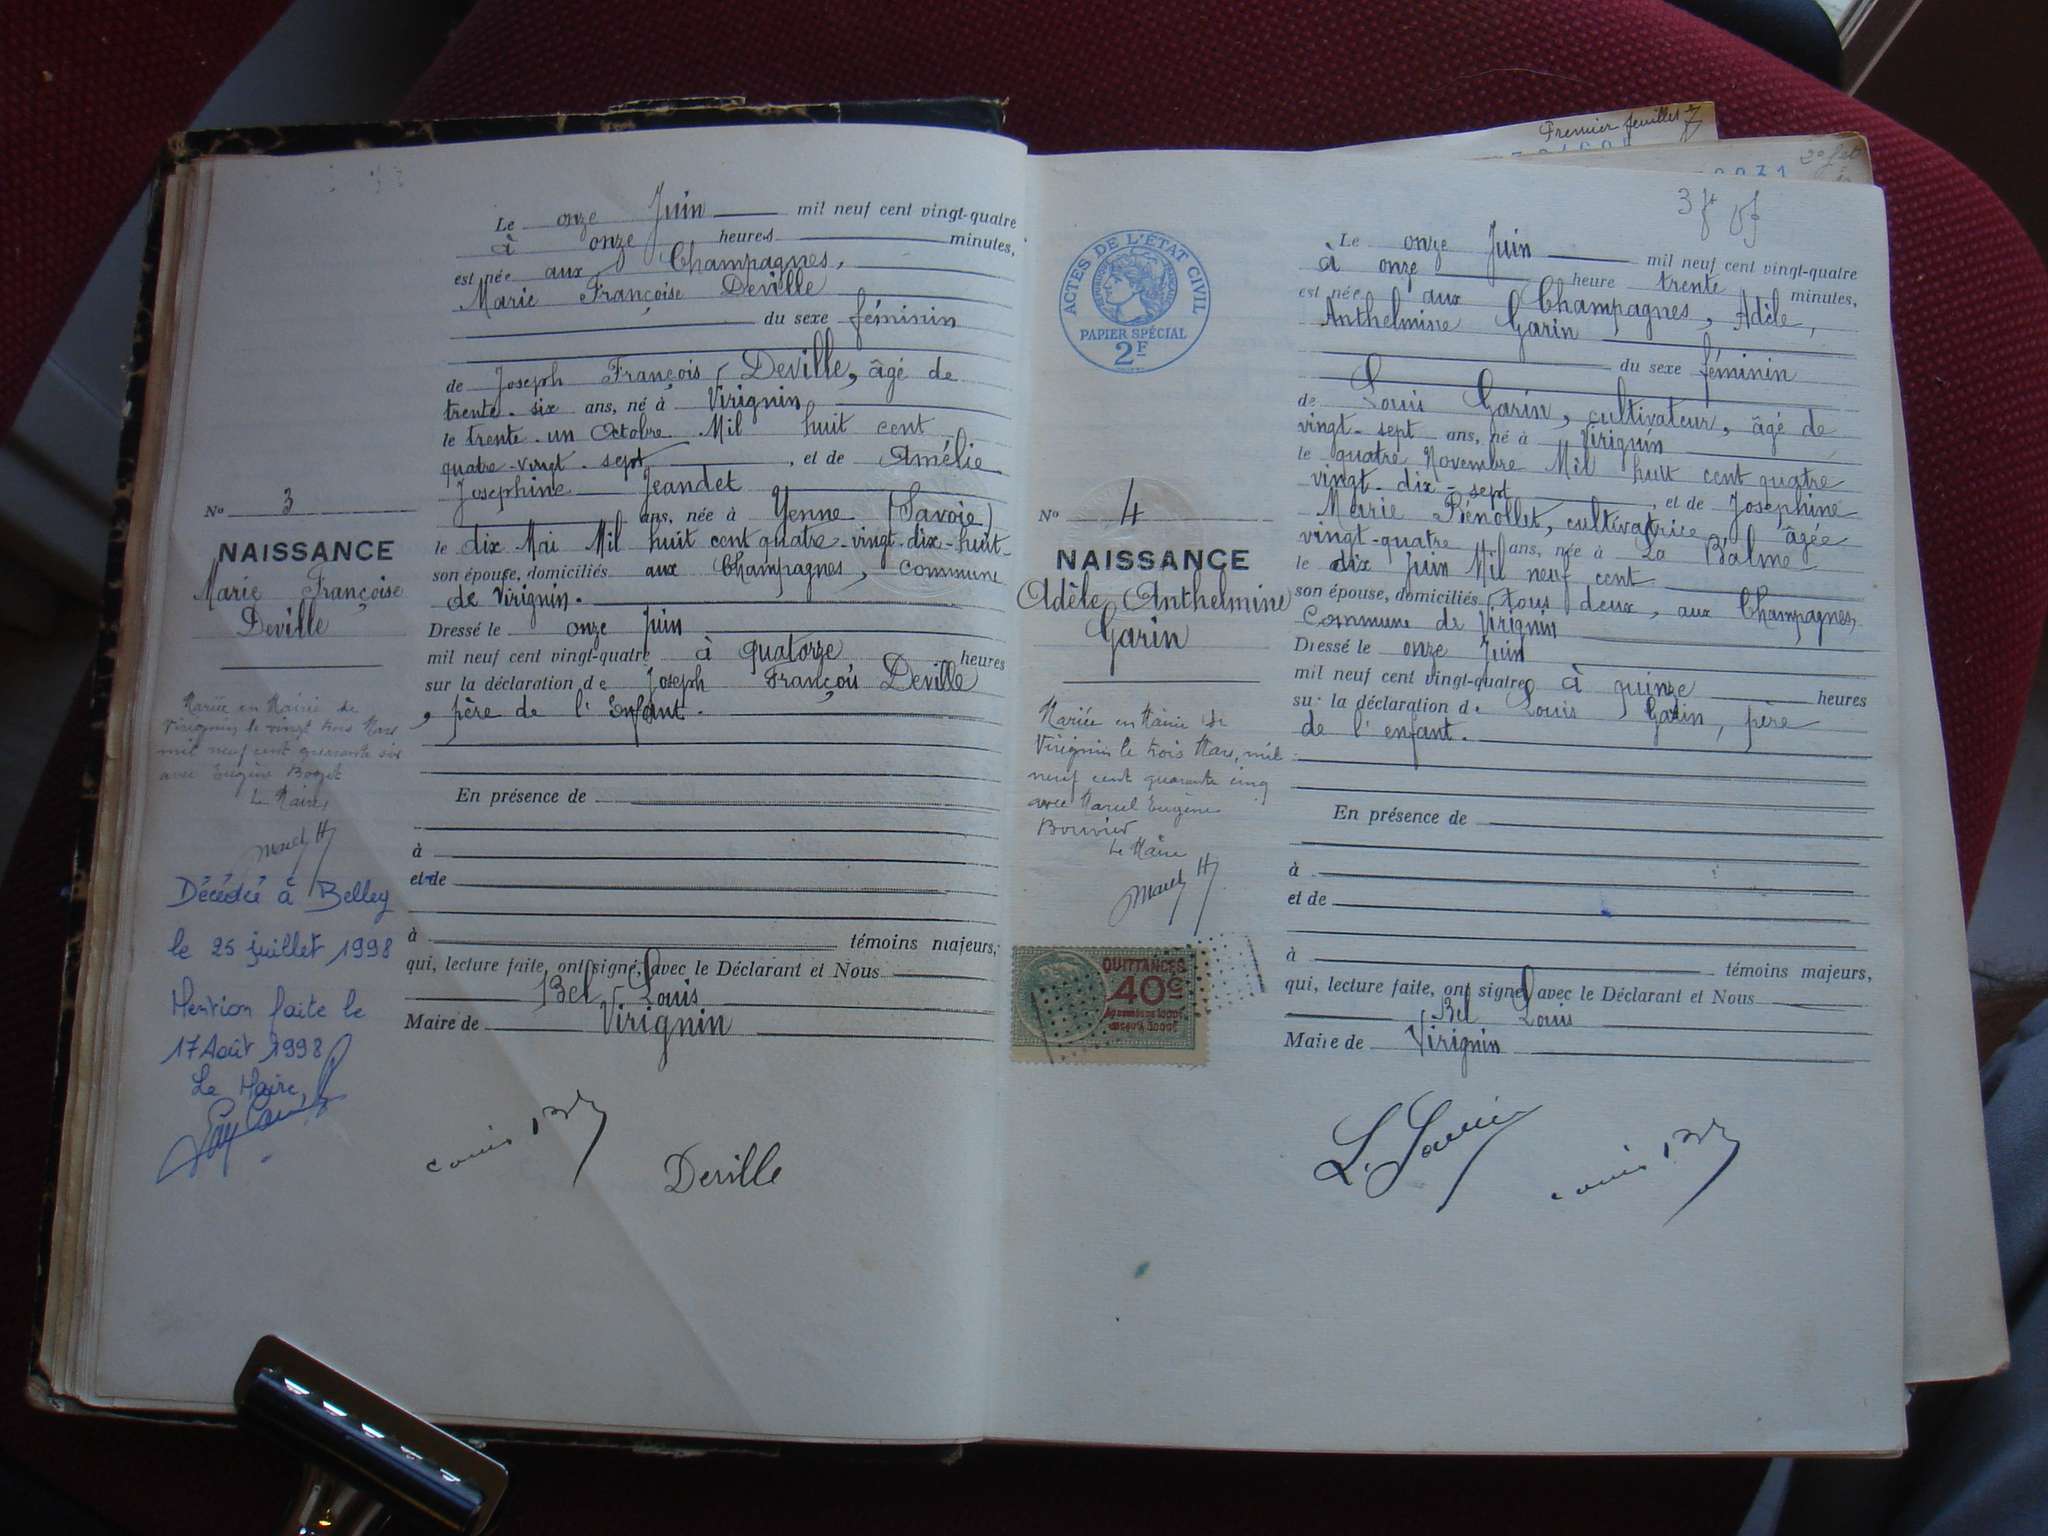 Le onze Juin mil neuf cent vingt-quatre
à onze heures minutes,
est née aux Champagnes,
Marie Françoise Deville
du sexe féminin
de Joseph François Deville, âgé de
trente-six ans, né à Virignin
le trente-un Octobre Mil huit cent
quatre-vingt-sept, et de Amélie
Josephine Jeandet
ans, née à Yenne (Savoie)
le dix Mai Mil huit cent quatre-vingt-dix-huit
son épouse, domiciliés aux Champagnes, commune
de Virignin.
Dressé le onze Juin
mil neuf cent vingt-quatre à quatorze heures
sur la déclaration de Joseph François Deville
, père de l'Enfant.
En présence de
à
et de
à témoins majeurs,
qui, lecture faite, ont signé, avec le Déclarant et Nous
Bel Louis
Maire de Virignin
Deville
No 3
NAISSANCE
Marie Françoise
Deville
Mariée en Mairie de
Virignin le vingt trois Mars
mil neuf cent quarante six
avec Eugène
Le Maire
Décédée à Belley
le 25 juillet 1998
Mention faite le
17 Août 1998
Le Maire,
Premier feuillet
3 ft
ACTES DE L'ÉTAT CIVIL
RÉPUBLIQUE FRANÇAISE
PAPIER SPÉCIAL
2F
Le onze Juin mil neuf cent vingt-quatre
à onze heure trente minutes,
est née aux Champagnes, Adèle,
Anthelmine Garin
du sexe féminin
de Louis Garin, cultivateur, âgé de
vingt-sept ans, né à Virignin
le quatre Novembre Mil huit cent quatre
vingt-dix-sept, et de Josephine
Marie Pénollet, cultivatrice, âgée
vingt-quatre ans, née à La Balme
le dix Juin Mil neuf cent
son épouse, domiciliés tous deux, aux Champagnes,
Commune de Virignin
Dressé le onze Juin
mil neuf cent vingt-quatre à quinze heures
sur la déclaration de Louis Garin, père
de l'enfant.
En présence de
à
et de
à témoins majeurs,
qui, lecture faite, ont signé, avec le Déclarant et Nous
Bel Louis
Maire de Virignin
No 4
NAISSANCE
Adèle Anthelmine
Garin
Mariée en Mairie de
Virignin le trois Mars, mil
neuf cent quarante cinq
avec Marcel Eugène
Bouvier
Le Maire
QUITTANCES
40c